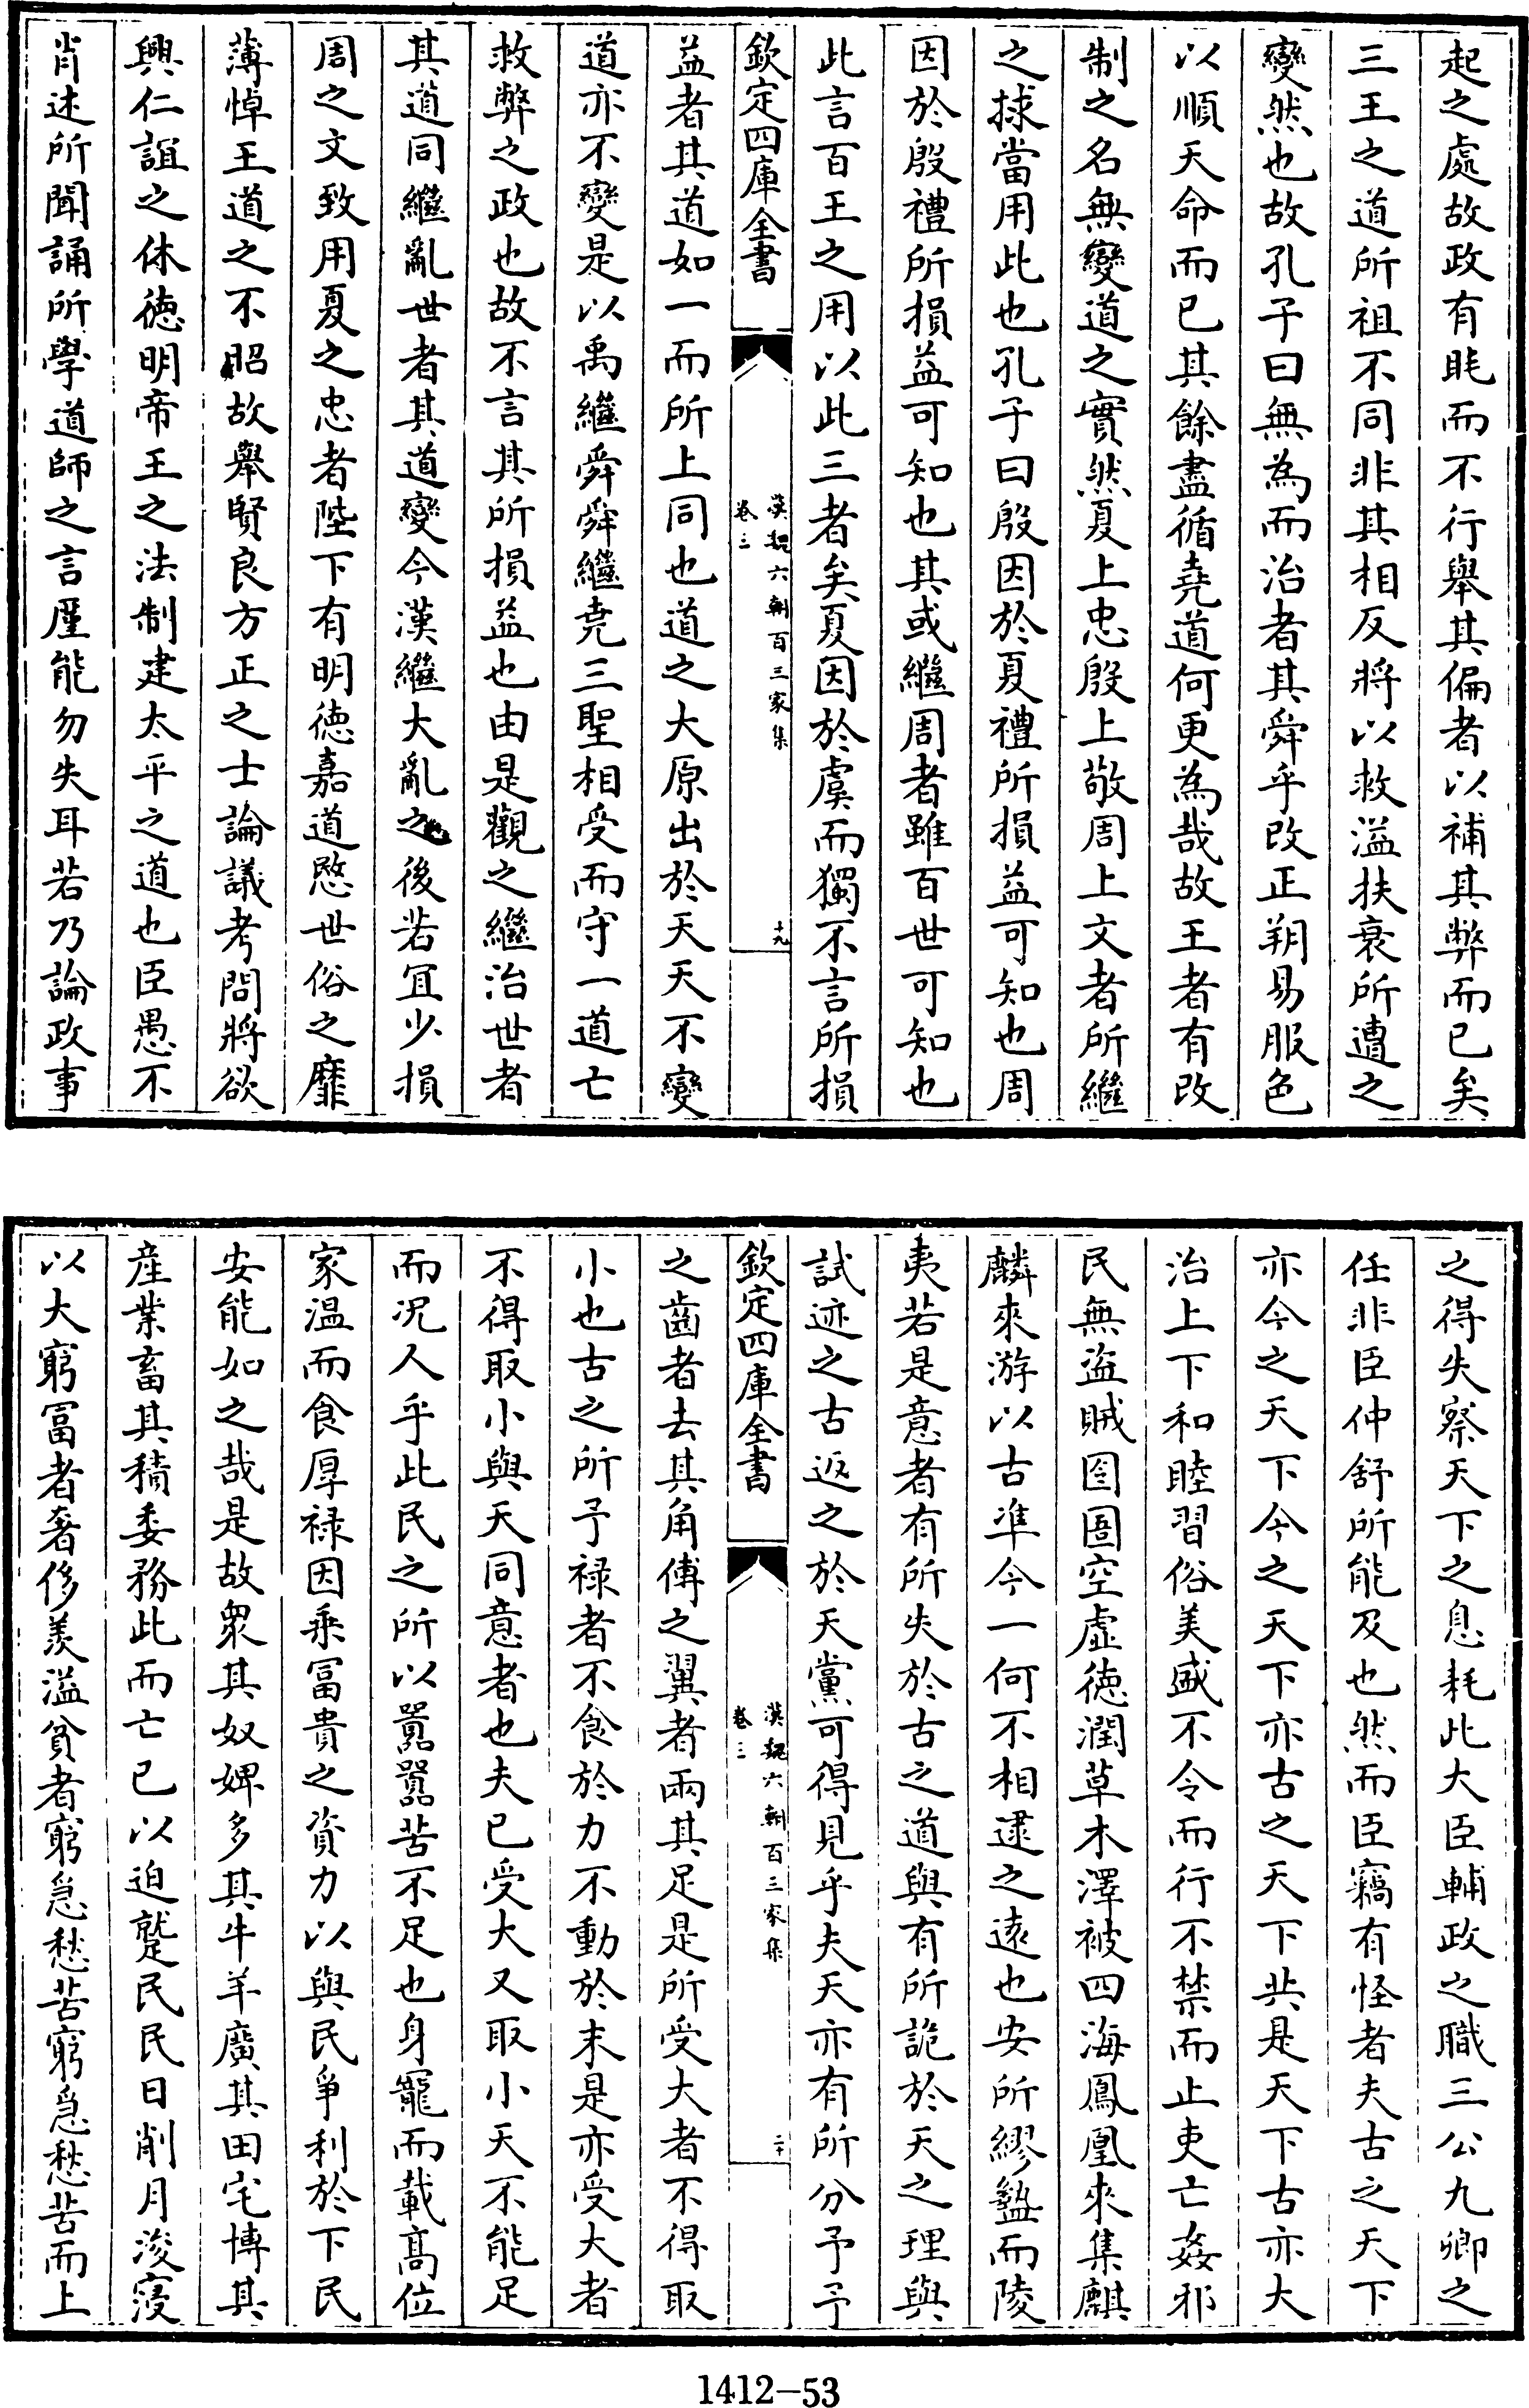 起之處故政有眊而不行舉其偏者以補其弊而已矣
三王之道所祖不同非其相反將以救溢扶衰所遭之
變然也故孔子曰無為而治者其舜乎改正朔易服色
以順天命而已其餘盡循堯道何更為哉故王者有改
制之名無變道之實然夏上忠殷上敬周上文者所繼
之捄當用此也孔子曰殷因於夏禮所損益可知也周
因於殷禮所損益可知也其或繼周者雖百世可知也
此言百王之用以此三者矣夏因於虞而獨不言所損
欽定四庫全書
漢魏六朝百三家集
卷三
十九
益者其道如一而所上同也道之大原出於天天不變
道亦不變是以禹繼舜舜繼堯三聖相受而守一道亡
救弊之政也故不言其所損益也由是觀之繼治世者
其道同繼亂世者其道變今漢繼大亂之後若宜少損
周之文致用夏之忠者陛下有明德嘉道愍世俗之靡
薄悼王道之不昭故舉賢良方正之士論議考問將欲
興仁誼之休德明帝王之法制建太平之道也臣愚不
肖述所聞誦所學道師之言厪能勿失耳若乃論政事
之得失察天下之息耗此大臣輔政之職三公九卿之
任非臣仲舒所能及也然而臣竊有怪者夫古之天下
亦今之天下今之天下亦古之天下共是天下古亦大
治上下和睦習俗美盛不令而行不禁而止吏亡姦邪
民無盜賊囹圄空虛德潤草木澤被四海鳳凰來集麒
麟來游以古準今一何不相逮之遠也安所繆盭而陵
夷若是意者有所失於古之道與有所詭於天之理與
試迹之古返之於天黨可得見乎夫天亦有所分予予
欽定四庫全書
漢魏六朝百三家集
卷三
二十
之齒者去其角傅之翼者兩其足是所受大者不得取
小也古之所予祿者不食於力不動於末是亦受大者
不得取小與天同意者也夫已受大又取小天不能足
而况人乎此民之所以囂囂苦不足也身寵而載高位
家温而食厚祿因乘富貴之資力以與民爭利於下民
安能如之哉是故衆其奴婢多其牛羊廣其田宅博其
産業畜其積委務此而亡已以迫蹵民民日削月浚寖
以大窮富者奢侈羨溢貧者窮急愁苦窮急愁苦而上
1412-53